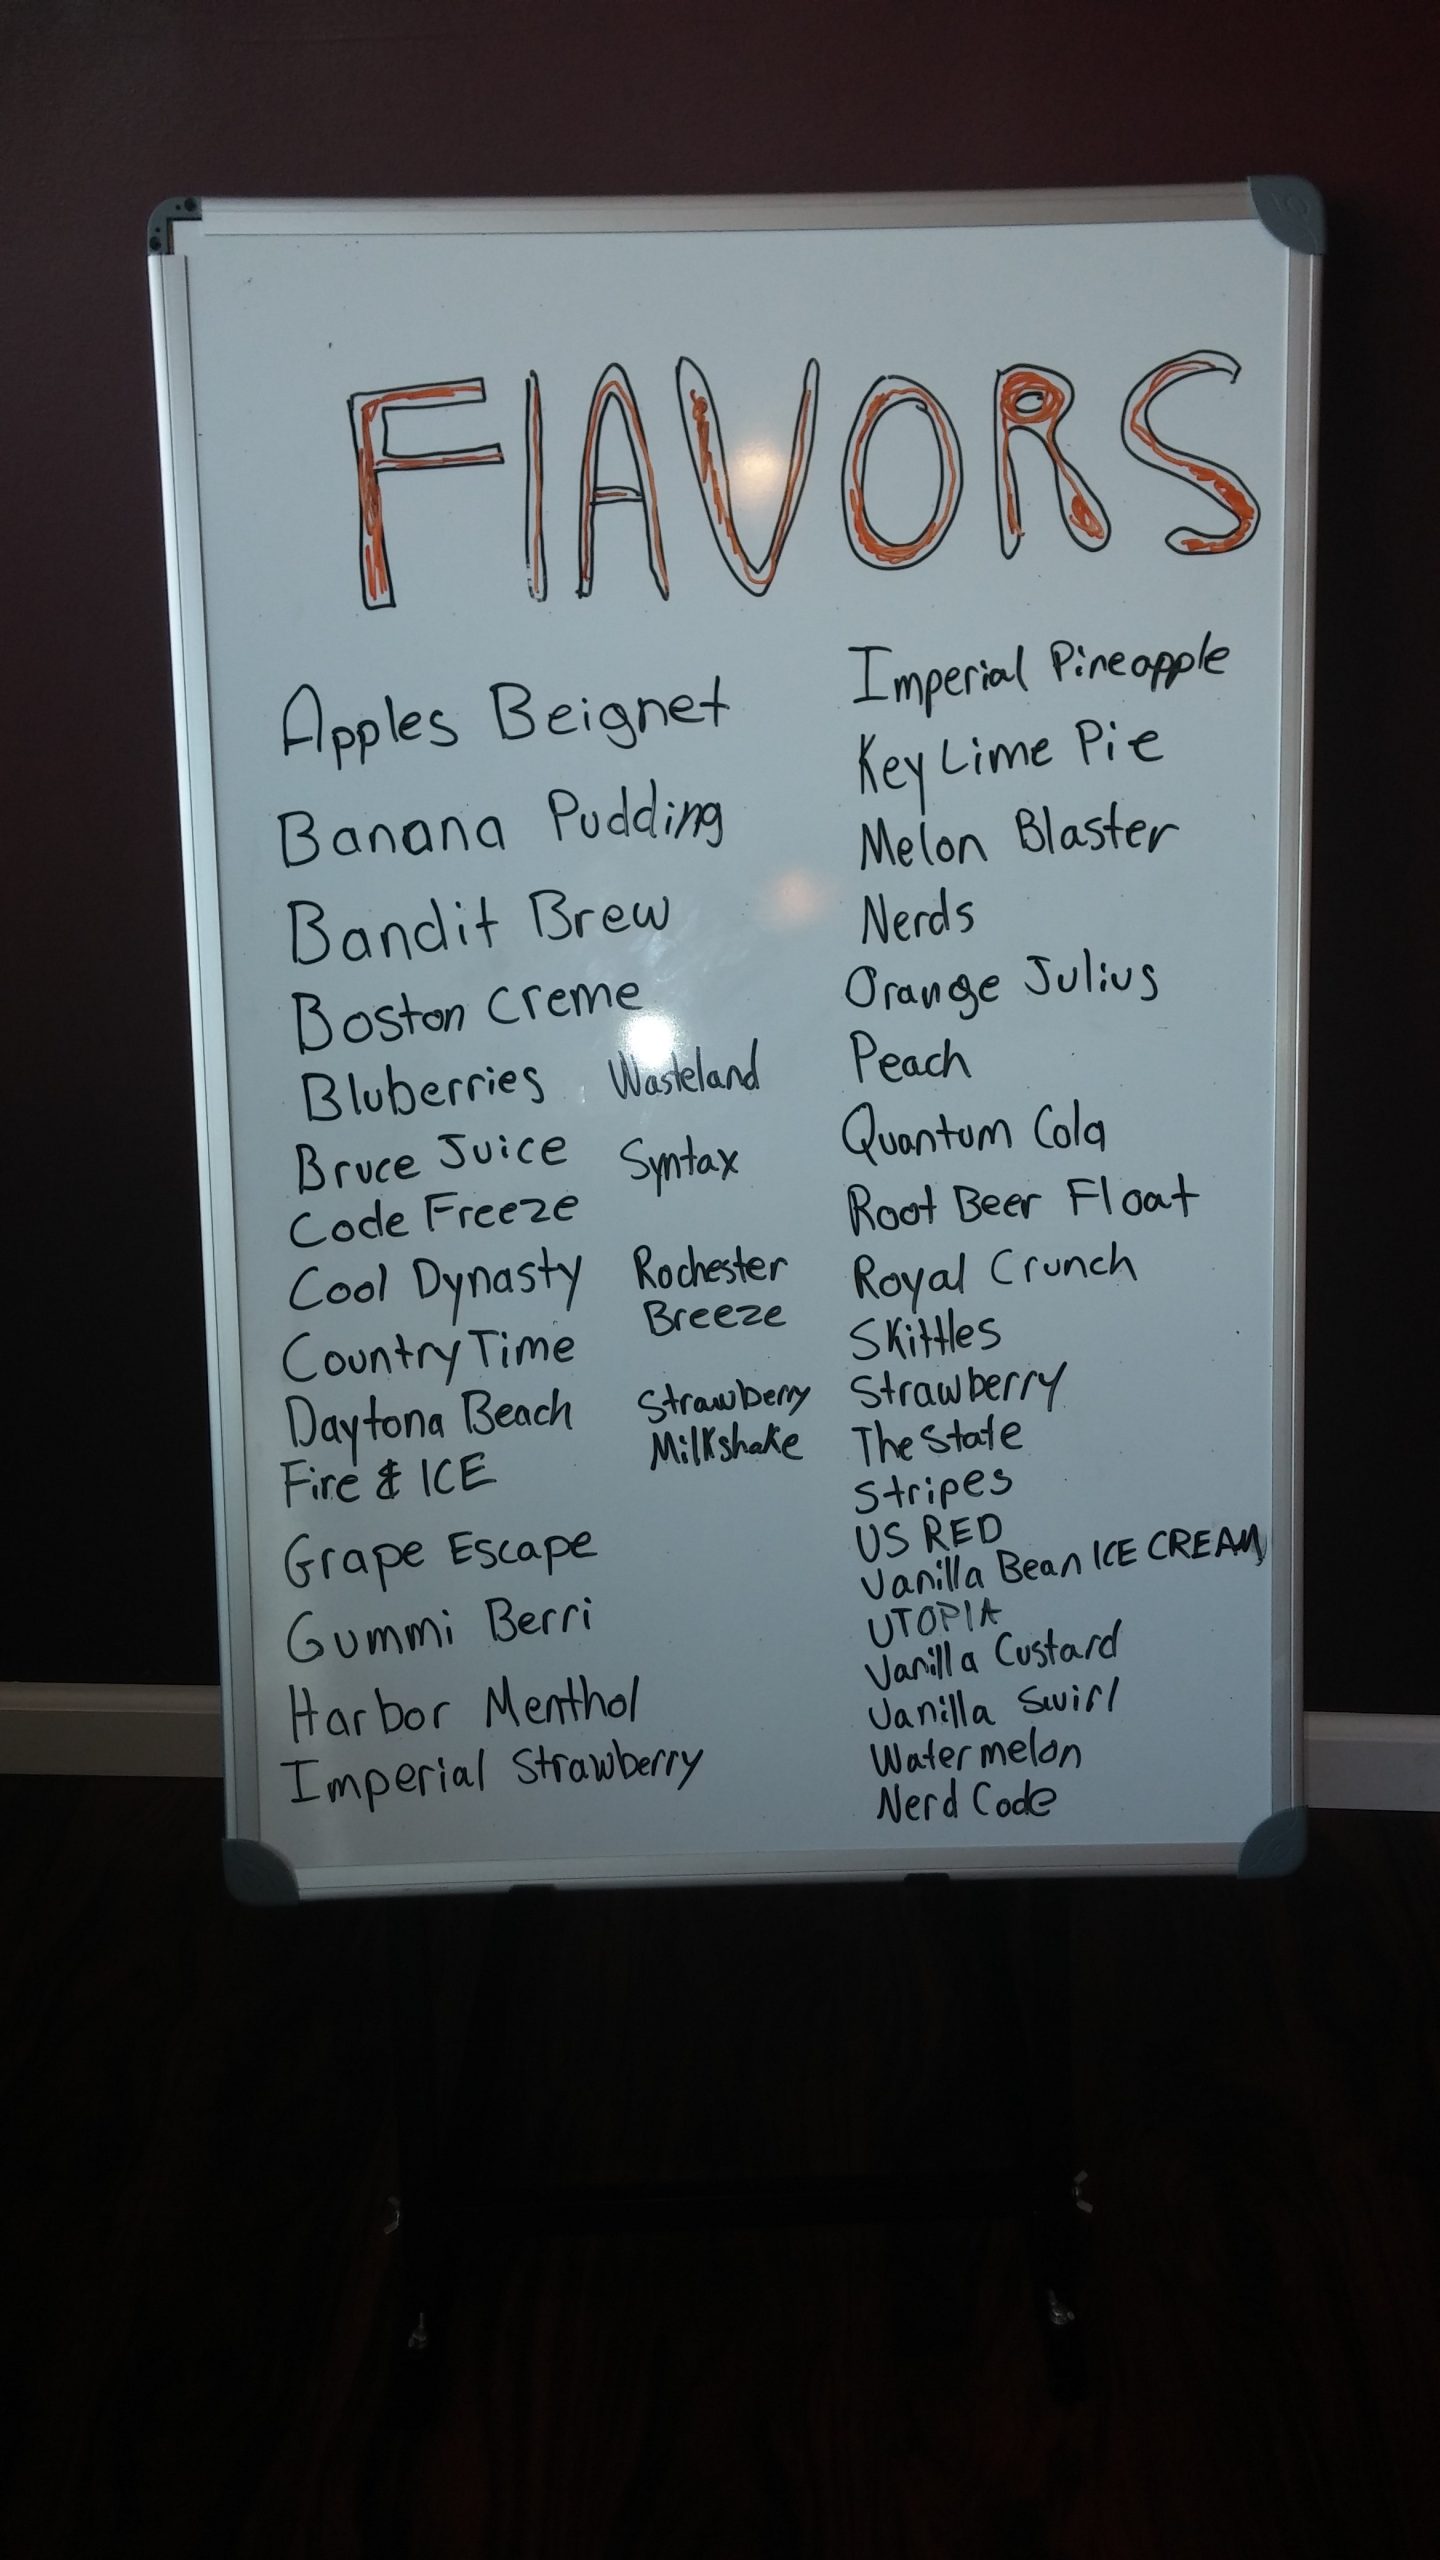 FlAVORS
Apples Beignet
Banana Pudding
Bandit Brew
Boston Creme
Bluberries
Bruce Juice
Code Freeze
Cool Dynasty
Country Time
Daytona Beach
Fire & ICE
Grape Escape
Gummi Berri
Harbor Menthol
Imperial Strawberry
Wasteland
Syntax
Rochester
Breeze
Strawberry
Milkshake
Imperial Pineapple
Key Lime Pie
Melon Blaster
Nerds
Orange Julius
Peach
Quantum Cola
Root Beer Float
Royal Crunch
Skittles
Strawberry
The State
Stripes
US RED
Vanilla Bean ICE CREAM
UTOPIA
Vanilla Custard
Vanilla Swirl
Watermelon
Nerd Code